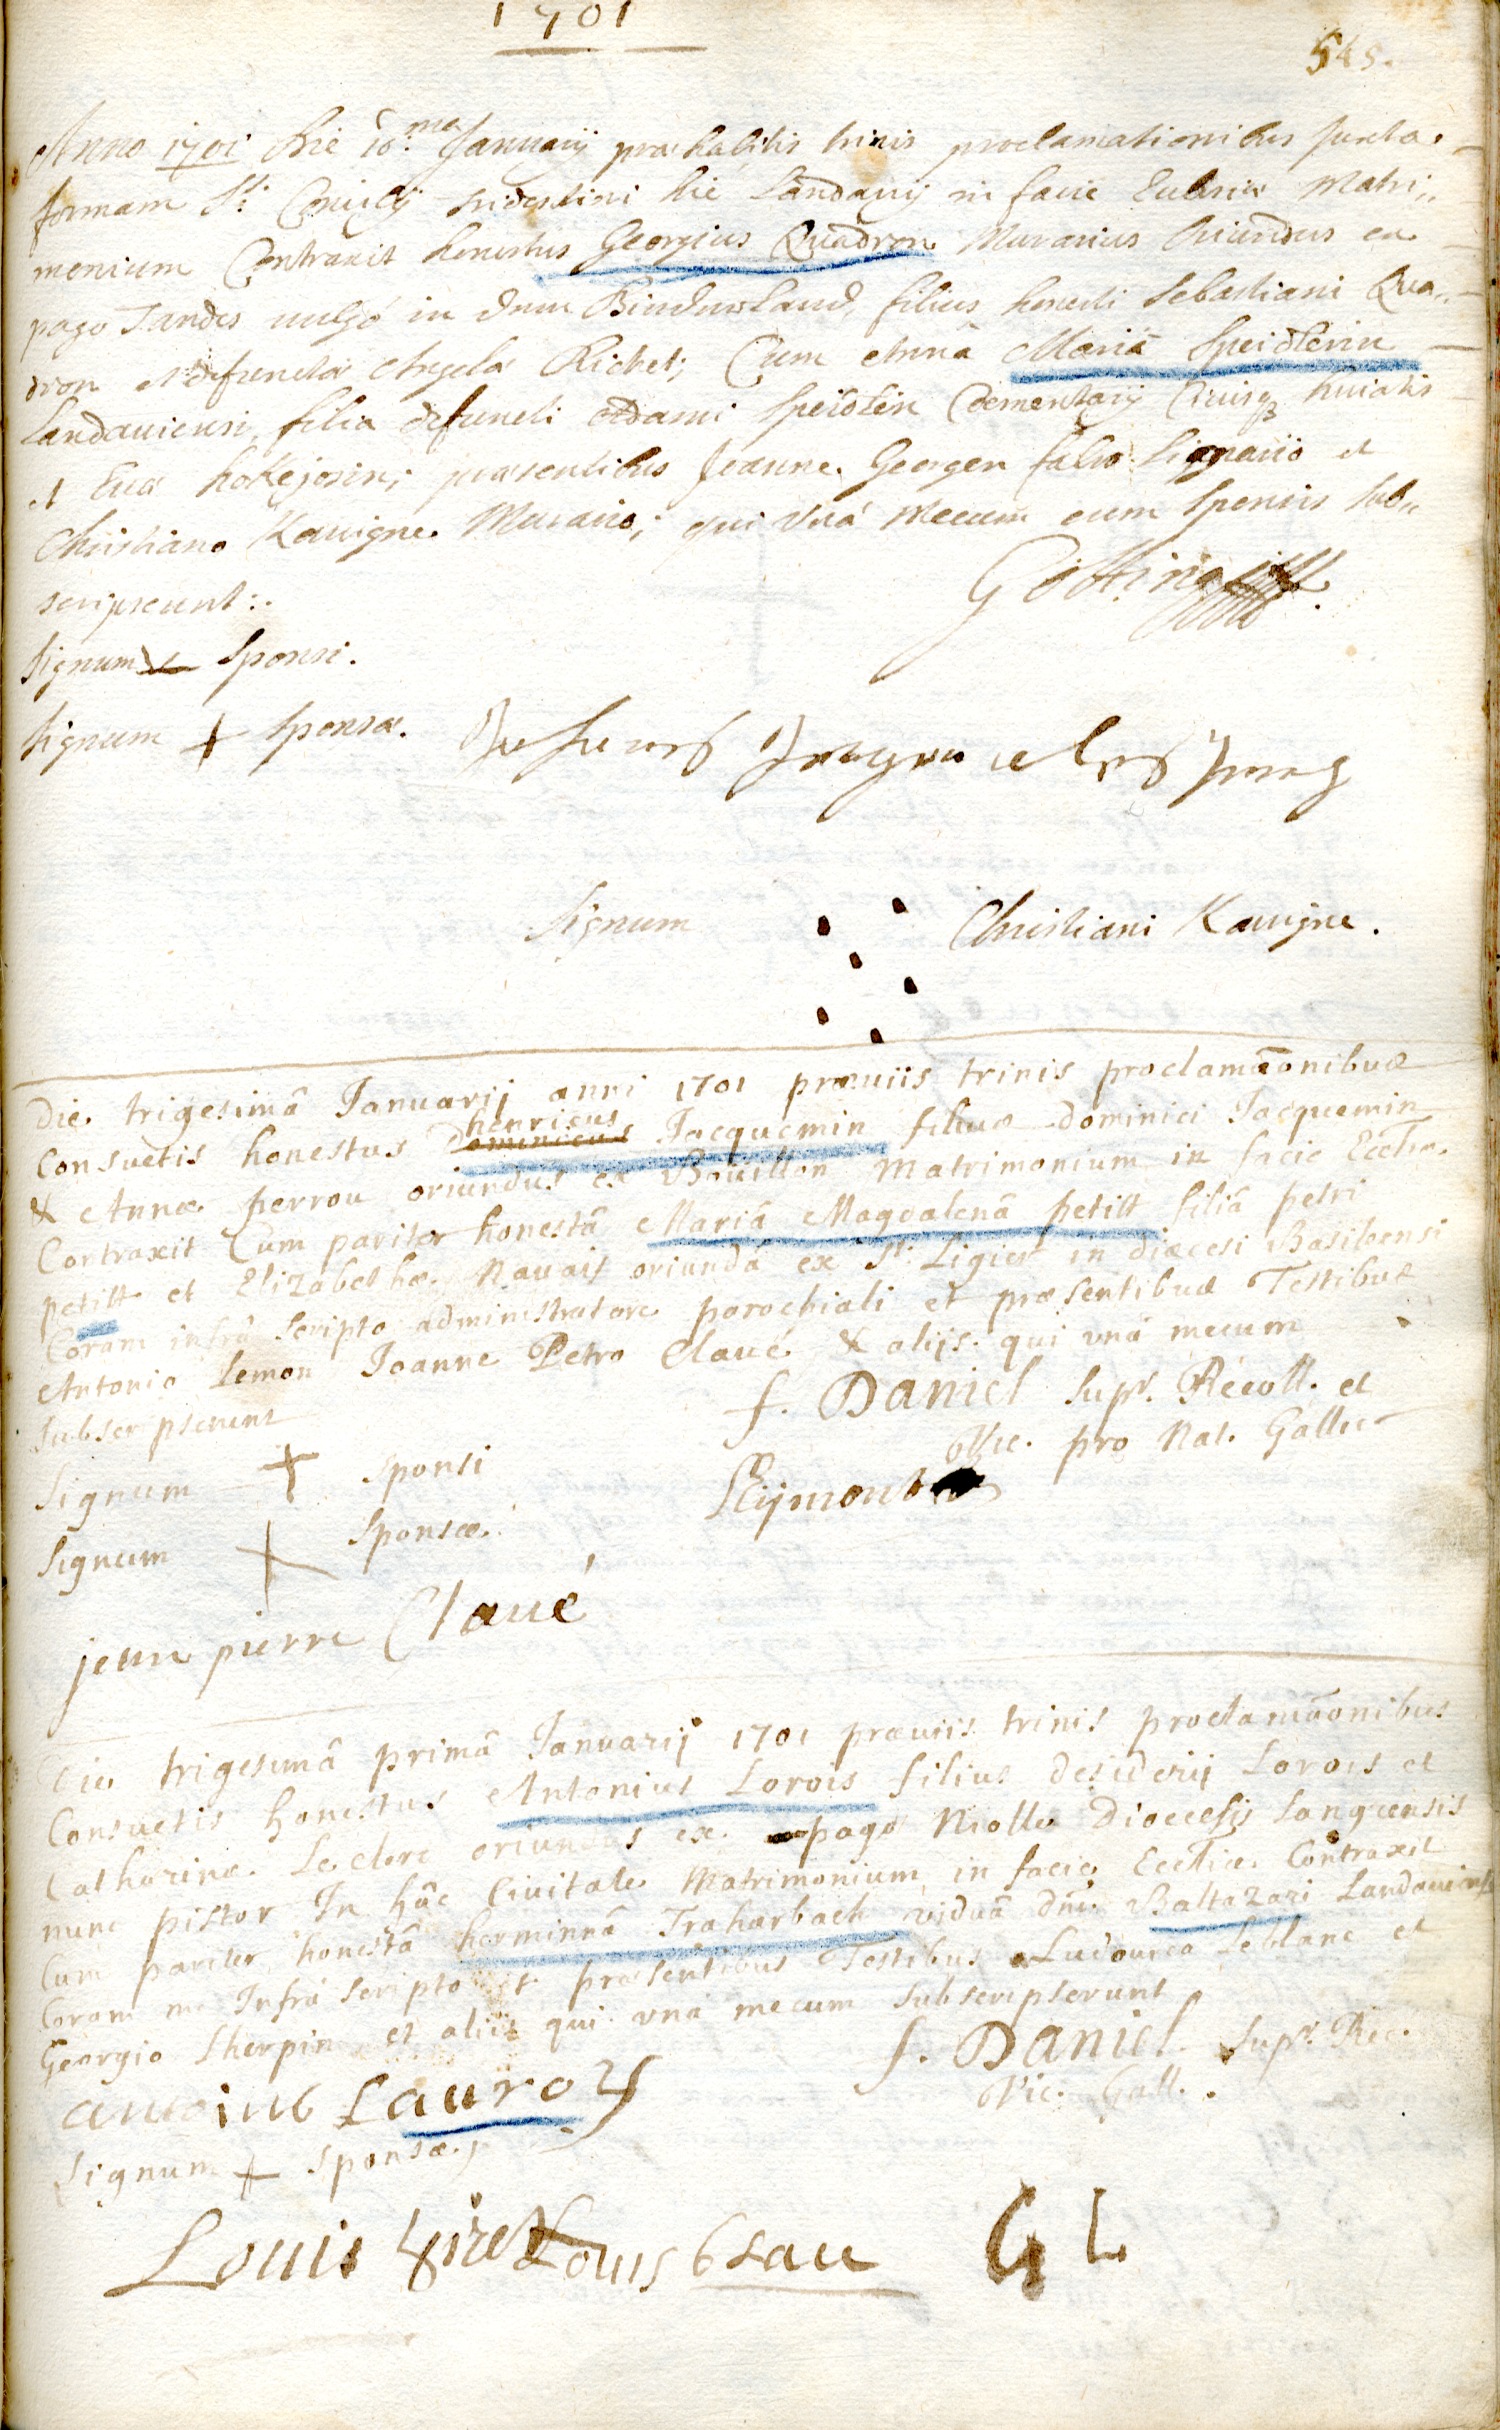 1701
545.
Anno 1701 die 10.ma Januarij praehabitis trinis proclamationibus Juxta
formam Sti Concilij tridentini hic Landavij in facie Ecclesiae Matri,,
monium Contraxit honestus Georgius Quadron Murarius Oriundus ex
pago Tandes vulgò in dem Bindnerland, filius honesti Sebastiani Qua,,
dron et defunctae Angela Richet; Cum Annâ Mariâ Speidlerin
Landaviensi, filia defuncti Adami Speidlin Coementarij Civisq huiatis
et Eva ; praesentibus Joanne Georgen fabro lignario et
Christiano Kauigne Murario; qui Vnà Mecum cum Sponsis sub,,
scripserunt:.
Signum Sponsi.
Signum + Sponsae.
Signum Christiani Kauigne.
Die trigesimâ Januarij anni 1701 praeviis trinis proclamāonibus
Consuetis honestus henricus Jacquemin filius dominici Jacquemin
& Annae perrou oriundus ex Bouillon Matrimonium in facie Eccliae
Contraxit Cum pariter honestâ Mariâ Magdalenâ petitt filiâ petri
petitt et Elizabethae Navais oriundâ ex St. Ligier in diaecesi Basileensi
Coram infrà scripto administratore parochiali et praesentibus Testibus
Antonio Lemon Joanne Petro Claué & alijs qui vnâ mecum
subscripserunt
f. Daniel Supr. Recoll. et
Vic. pro Nat. Gallic
Signum + sponsi
Signum + Sponsae
jean pierre Claué
Die trigesimâ primâ Januarij 1701 praeviis trinis proclamāonibus
Consuetis honestus Antonius Lorois filius desiderij Lorois et
Catharinae Leclerc oriundus ex pago Molle Dioecesis Langrensis
nunc pistor In hâc Civitate Matrimonium in facie Eccliae Contraxit
Cum pariter honestâ herminnâ Traharbach viduâ dni Baltazari Landaviensi
Coram me Infrà scripto et praesentibus Testibus Ludovico Leblanc et
Georgio Sherpin et aliis qui vna mecum subscripserunt
f. Daniel Supr. Rec.
Vic. Gall.
antoine Lauroy
Signum + Sponsae
Louis Louis blau G L